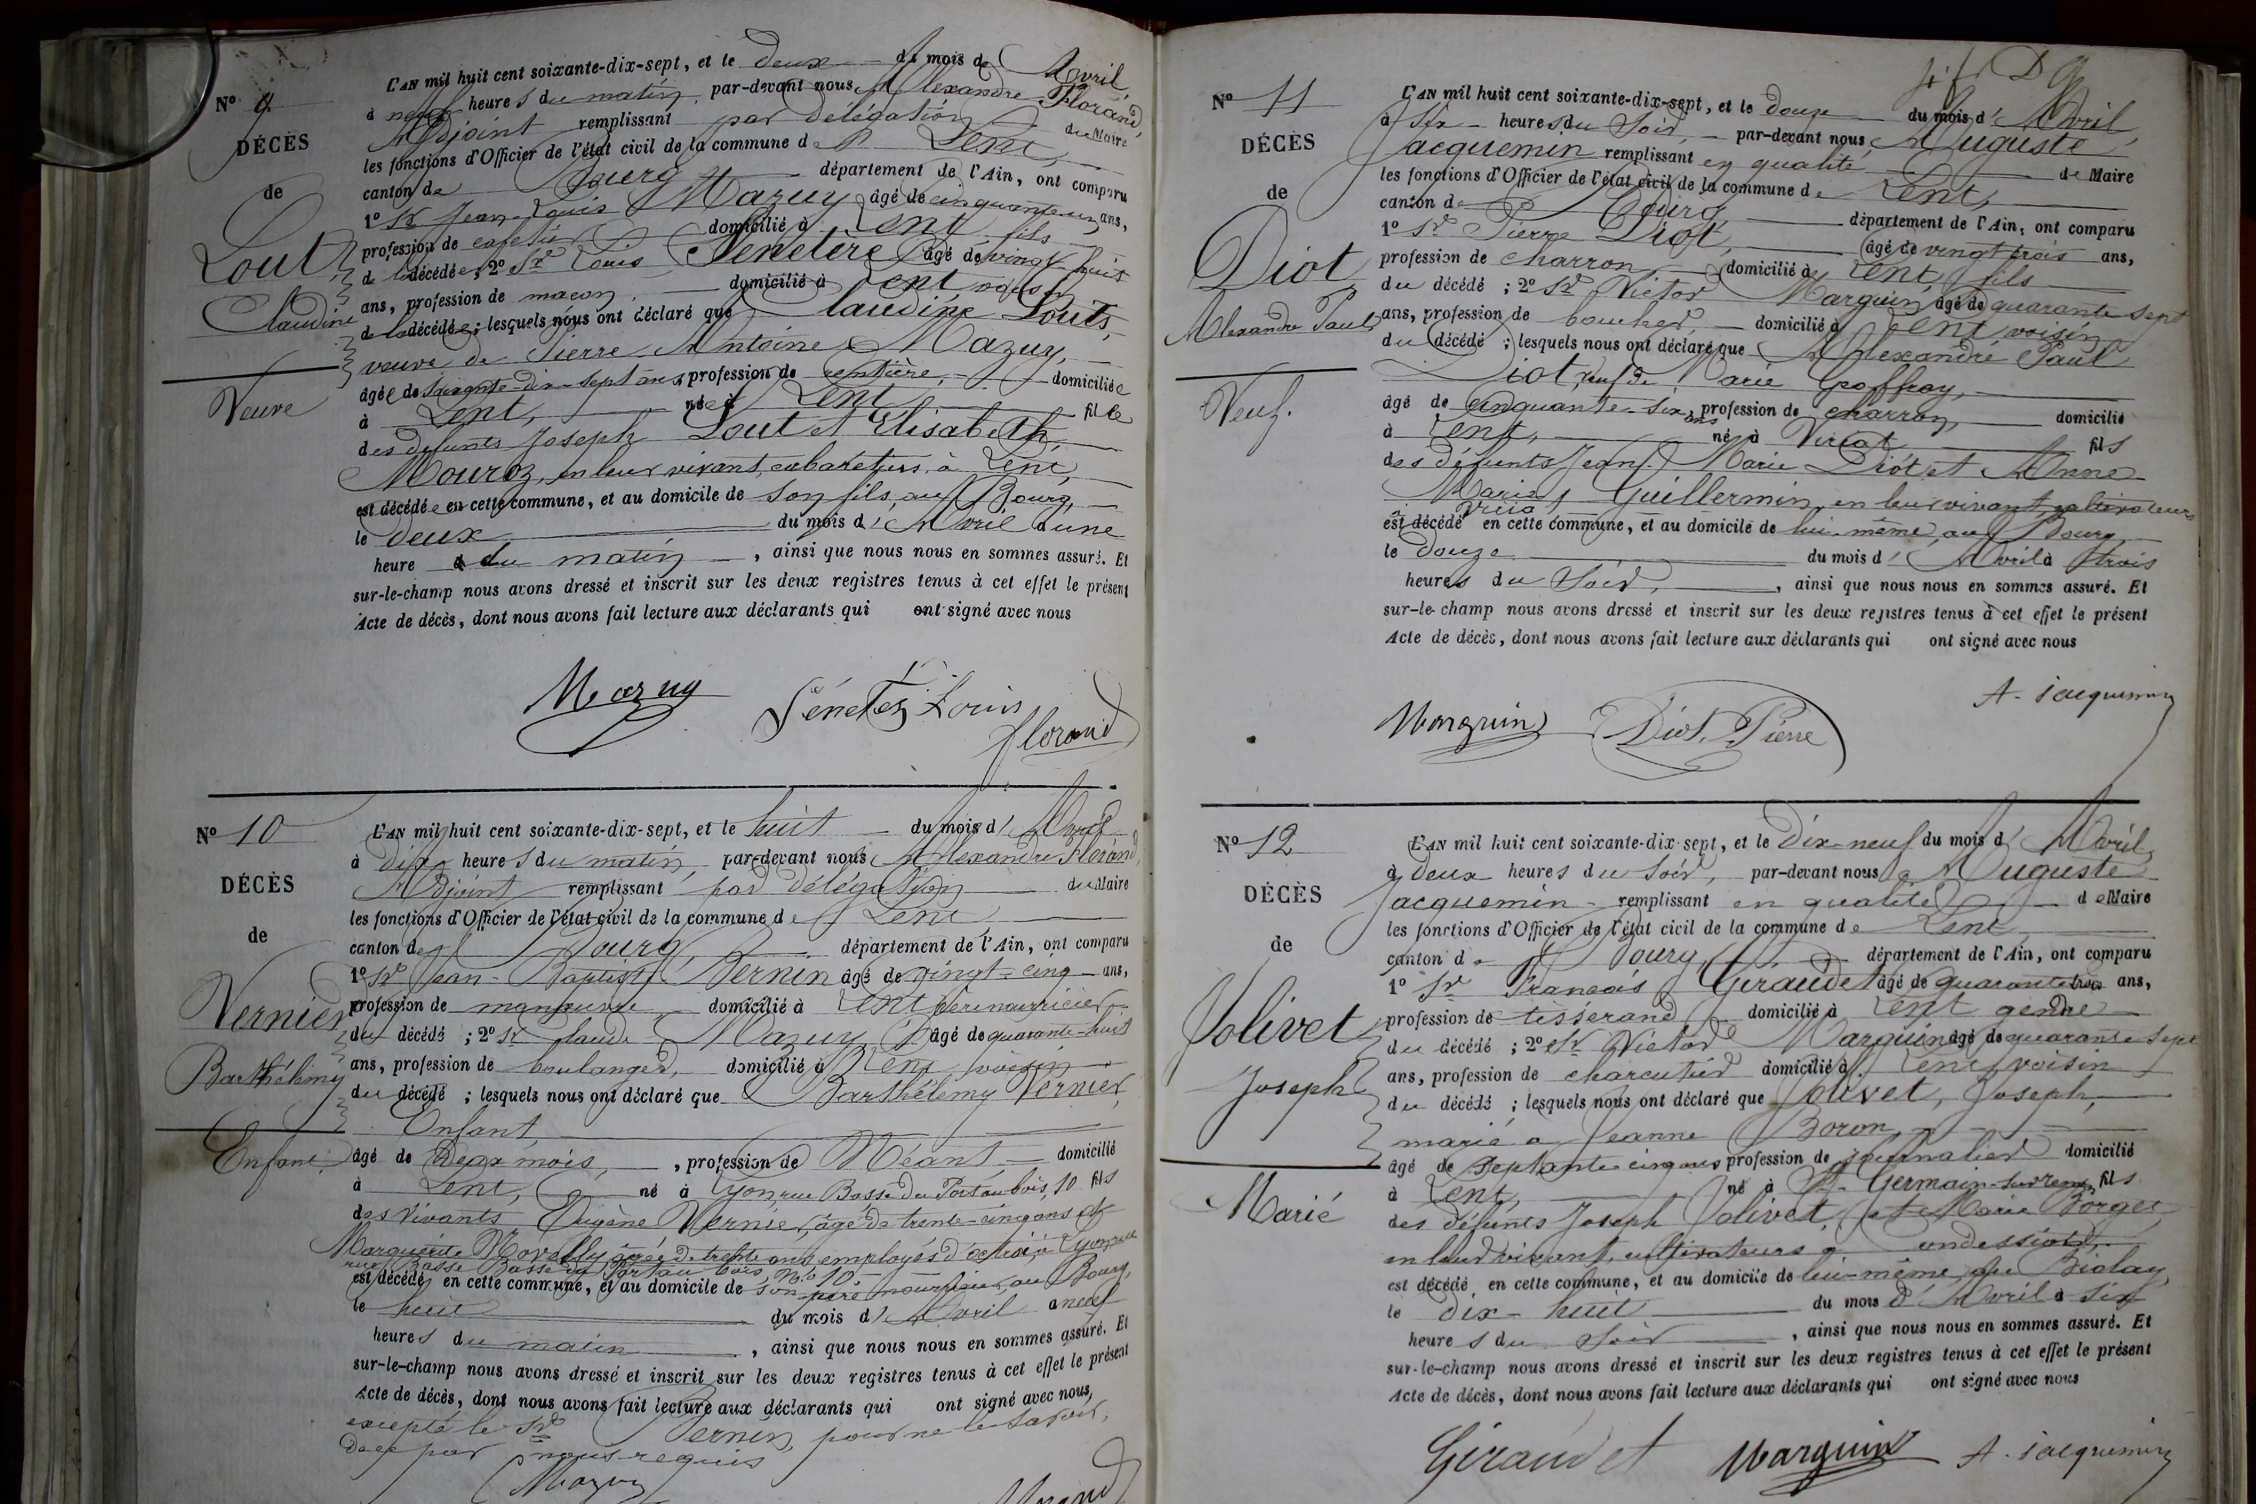 N° 9
DÉCÈS
de
Lout
Claudine
Veuve
L'AN mil huit cent soixante-dix-sept, et le deux du mois de Avril
à neuf heures du matin, par-devant nous Alexandre Florand,
Adjoint remplissant par délégation du Maire
les fonctions d'Officier de l'état civil de la commune de Lent,
canton de Bourg département de l'Ain, ont comparu
1° Sr Jean-Louis Mazuy âgé de cinquante un ans,
profession de cafetier domicilié à Lent fils
de la décédée ; 2° Sr Louis Senetère âgé de vingt-huit
ans, profession de maçon, domicilié à Lent voisin
de la décédée ; lesquels nous ont déclaré que Claudine Louts,
veuve de Pierre Antoine Mazuy,
âgée de Soixante-dix-sept ans, profession de rentière, domiciliée
à Lent, née à Lent fille
des défunts Joseph Lout et Elisabeth
Mouroz, en leur vivant cabaretiers à Lent,
est décédée en cette commune, et au domicile de son fils, au Bourg,
le deux du mois d'Avril à une
heure du matin, ainsi que nous nous en sommes assuré. Et
sur-le-champ nous avons dressé et inscrit sur les deux registres tenus à cet effet le présent
Acte de décès, dont nous avons fait lecture aux déclarants qui ont signé avec nous
Mazuy Sénetèr Louis
Florand
N° 10
DÉCÈS
de
Vernier
Barthélemy
Enfant
L'AN mil huit cent soixante-dix-sept, et le huit du mois d'Avril
à dix heures du matin, par-devant nous Alexandre Florand,
Adjoint remplissant par délégation du Maire
les fonctions d'Officier de l'état civil de la commune de Lent
canton de Bourg, département de l'Ain, ont comparu
1° Sr Jean-Baptiste Pernin âgé de vingt-cinq ans,
profession de manœuvre domicilié à Lent père nourricier
du décédé ; 2° Sr Claude Mazuy âgé de quarante-huit
ans, profession de boulanger, domicilié à Lent voisin
du décédé ; lesquels nous ont déclaré que Barthélemy Vernier,
Enfant,
âgé de Deux mois, profession de Néant domicilié
à Lent, né à Lyon, rue Basse du Port au bois, 10 fils
des vivants Eugène Vernier, âgé de trente-cinq ans et
Marguerite Novelly âgée de trente ans employés d'octroi, à Lyon, rue
rue Basse Basse du Port au bois, N° 10.
est décédé en cette commune, et au domicile de son père nourricier, au Bourg,
le huit du mois d'Avril à neuf
heures du matin, ainsi que nous nous en sommes assuré. Et
sur-le-champ nous avons dressé et inscrit sur les deux registres tenus à cet effet le présent
Acte de décès, dont nous avons fait lecture aux déclarants qui ont signé avec nous,
excepté le Sr Pernin, pour ne le savoir,
de ce par nous requis
Mazuy
N° 11
DÉCÈS
de
Diot
Alexandre Paul
Veuf.
L'AN mil huit cent soixante-dix-sept, et le douze du mois d'Avril,
à Six heures du Soir, par-devant nous Auguste
Jacquemin remplissant en qualité de Maire
les fonctions d'Officier de l'état civil de la commune de Lent,
canton de Bourg, département de l'Ain, ont comparu
1° Sr Pierre Diot, âgé de vingt trois ans,
profession de charron, domicilié à Lent, fils
du décédé ; 2° Sr Victor Marguin, âgé de quarante sept
ans, profession de boucher, domicilié à Lent voisin
du décédé ; lesquels nous ont déclaré que Alexandre Paul
Diot, veuf de Marie Geoffray,
âgé de cinquante-six ans, profession de charron, domicilié
à Lent, né à Viriat fils
des défunts Jean Marie Diot et Anne
Marie Guillermin, en leur vivant cultivateurs
est décédé en cette commune, et au domicile de lui-même, au Bourg
le douze du mois d'Avril à trois
heures du Soir, ainsi que nous nous en sommes assuré. Et
sur-le-champ nous avons dressé et inscrit sur les deux registres tenus à cet effet le présent
Acte de décès, dont nous avons fait lecture aux déclarants qui ont signé avec nous
A. Jacquemin
Marguin Diot Pierre
N° 12
DÉCÈS
de
Jolivet
Joseph
Marié
L'AN mil huit cent soixante-dix-sept, et le dix-neuf du mois d'Avril,
à deux heures du Soir, par-devant nous Auguste
Jacquemin remplissant en qualité de Maire
les fonctions d'Officier de l'état civil de la commune de Lent
canton de Bourg, département de l'Ain, ont comparu
1° Sr François Giraudet âgé de quarante trois ans,
profession de tisserand domicilié à Lent gendre
du décédé ; 2° Sr Victor Marguin âgé de quarante sept
ans, profession de charcutier domicilié à Lent, voisin
du décédé ; lesquels nous ont déclaré que Jolivet, Joseph,
marié à Jeanne Boron
âgé de Septante cinq ans profession de journalier domicilié
à Lent, né à St Germain-sur-renon, fils
des défunts Joseph Jolivet, et Marie Borget
en leur vivant, cultivateurs à Condessiat,
est décédé en cette commune, et au domicile de lui-même, au Biolay,
le dix-huit du mois d'Avril à six
heures du Soir, ainsi que nous nous en sommes assuré. Et
sur-le-champ nous avons dressé et inscrit sur les deux registres tenus à cet effet le présent
Acte de décès, dont nous avons fait lecture aux déclarants qui ont signé avec nous
Giraudet Marguin A. Jacquemin